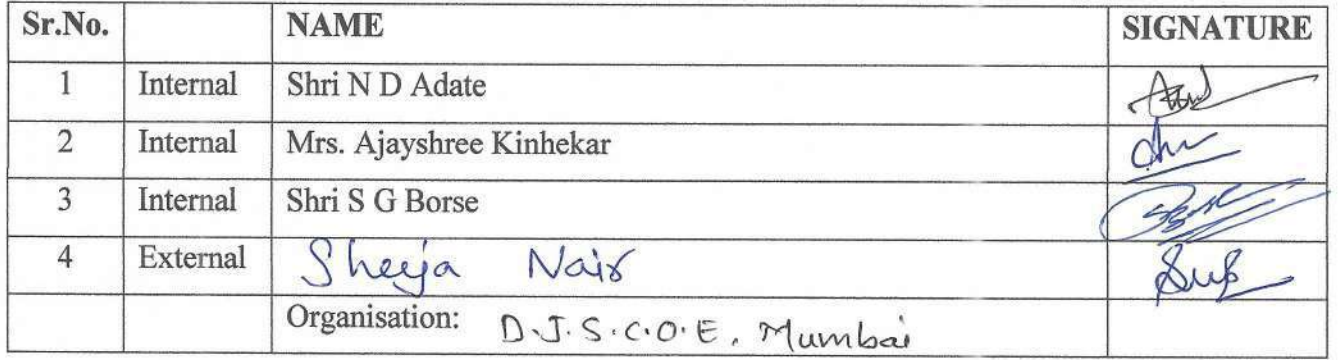 Sr.No. NAME SIGNATURE
1 Internal Shri N D Adate
2 Internal Mrs. Ajayshree Kinhekar
3 Internal Shri S G Borse
4 External Sheeja Nair
Organisation: D.J.S.C.O.E, Mumbai